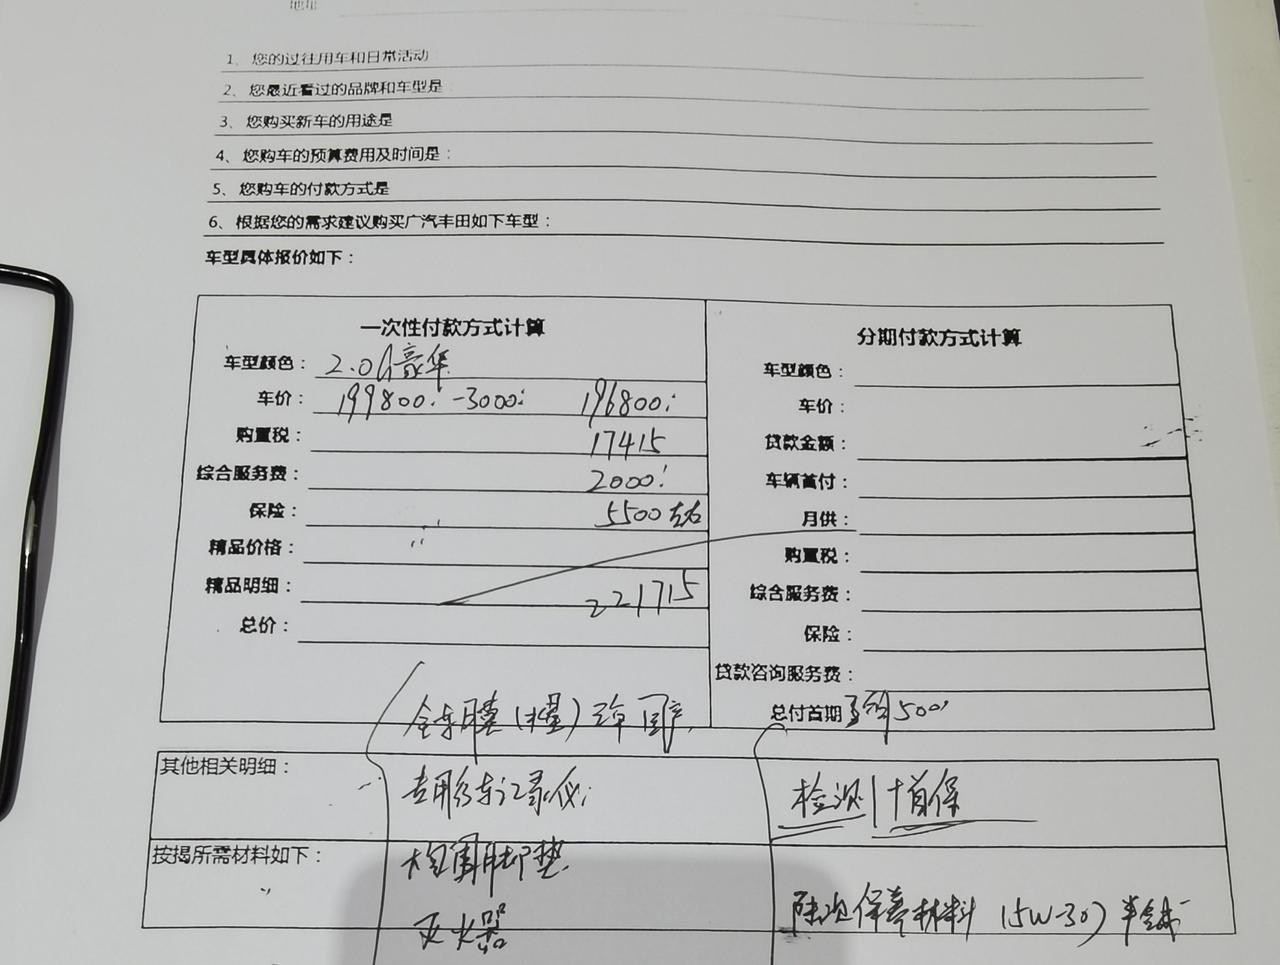 地址
1、您的过往用车和日常活动
2、您最近看过的品牌和车型是
3、您购买新车的用途是
4、您购车的预算费用及时间是：
5、您购车的付款方式是
6、根据您的需求建议购买广汽丰田如下车型：
车型具体报价如下：
一次性付款方式计算
车型颜色：2.0 豪华
车价：199800 -3000 196800
购置税：17415
综合服务费：2000
保险：5500左右
精品价格：
精品明细：221715
总价：
分期付款方式计算
车型颜色：
车价：
贷款金额：
车辆首付：
月供：
购置税：
综合服务费：
保险：
贷款咨询服务费：
总付首期 500
全车膜
国产
其他相关明细：
专用行车记录仪
检测 首保
按揭所需材料如下：
大包围脚垫
保养材料 (5W-30) 半合成
灭火器